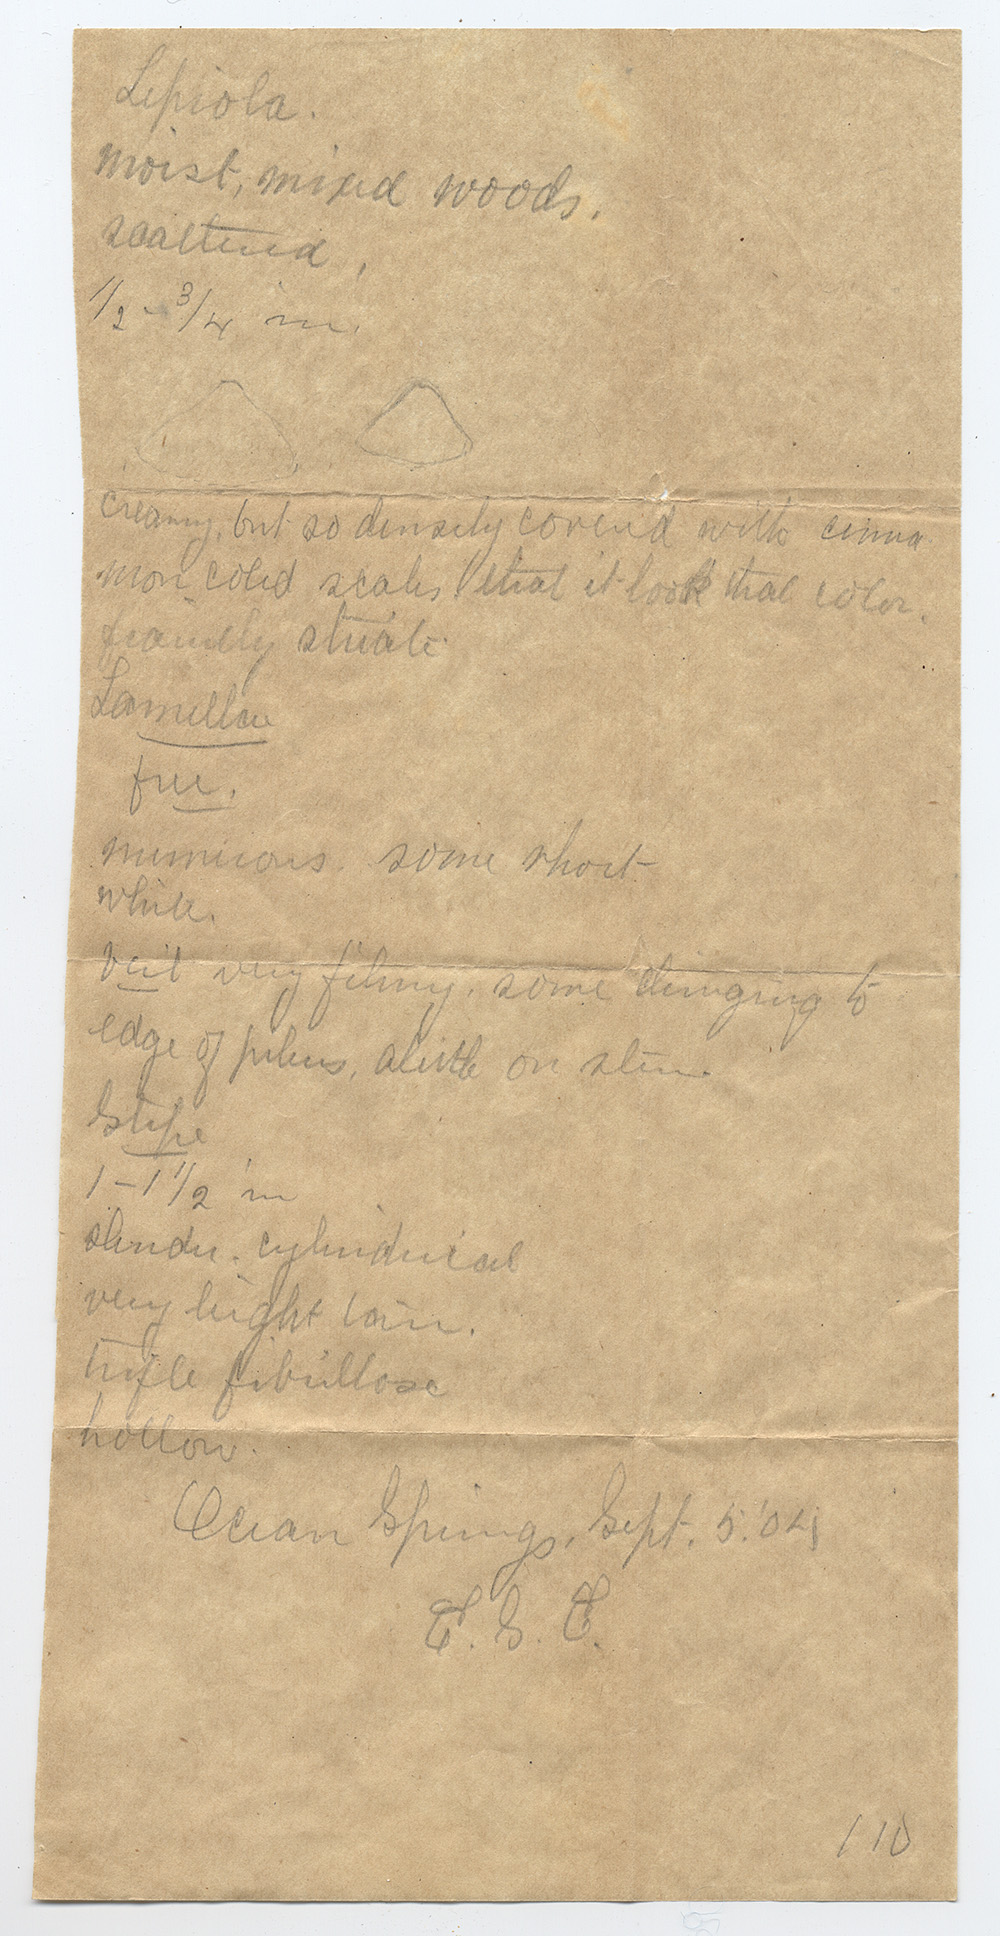 Lepiota.
moist, mixed woods.
scattered,
1/2 - 3/4 in.
creamy, but so densely covered with cinna
mon col'd scales that it look that color.
faintly striate
Lamellae
free.
numerous. some short
white.
veil very filmy. some clinging to
edge of pileus, a little on stem.
Stipe
1 - 1 1/2 in
slender. cylindrical
very light
trifle fibrillose
hollow.
Ocean Springs, Sept. 5. '04
F. S. E.
110